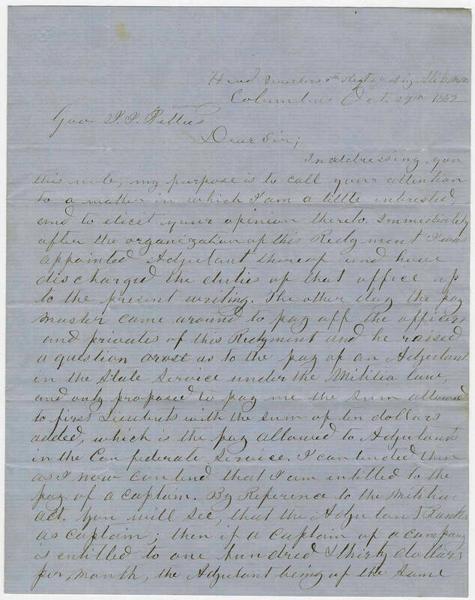 Head Quarters Regt
Columbus Oct 29th 1862
Gov J. J. Pettus
Dear Sir;
In addressing you
this note, my purpose is to call your attention
to a matter in which I am a little interested,
and to elicit your opinion thereto. Immediately
after the organization of this Redgment I was
appointed Adjutant thereof and have
discharged the duties of that office up
to the present writing. The other day the pay
master came around to pay off the officers
and privates of this Redgment and he raised
a question arose as to the pay of an Adjutant
in the State Service under the Militia law,
and only proposed to pay me the sum allowed
to first Lieutents with the sum of ten dollars
added, which is the pay allowed to Adjutants
in the Con federate Service. I contended then
as I now contend that I am entitled to the
pay of a captain. By Reference to the Militia
act. you will see, that the Adjutant Ranks
as captain; then if a captain of a company
is entitled to one hundred & thirty dollars
per month, the Adjutant being of the same